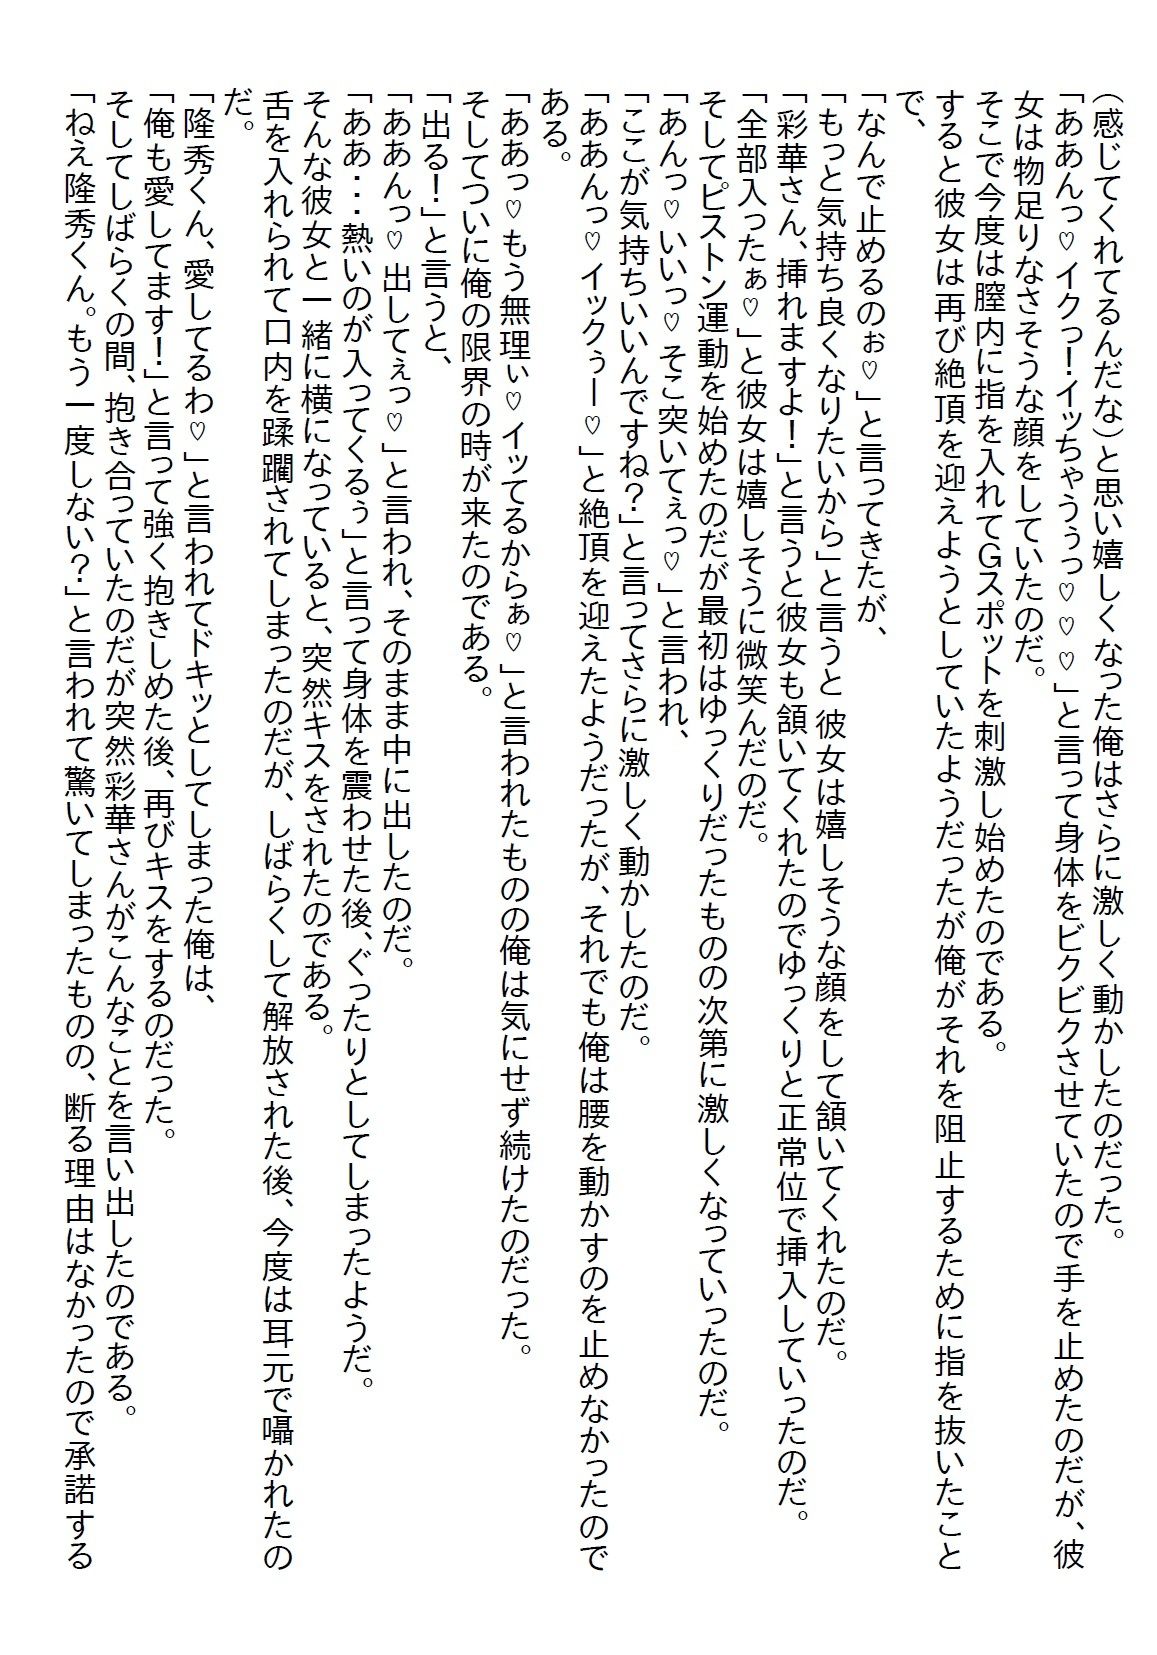 (感じてくれてるんだな)と思い嬉しくなった俺はさらに激しく動かしたのだった。
「ああんっ♡イクっ！イッちゃうぅっ♡♡♡」と言って身体をビクビクさせていたので手を止めたのだが、彼
女は物足りなさそうな顔をしていたのだ。
そこで今度は膣内に指を入れてGスポットを刺激し始めたのである。
すると彼女は再び絶頂を迎えようとしていたようだったが俺がそれを阻止するために指を抜いたこと
で、
「なんで止めるのぉ♡」と言ってきたが、
「もっと気持ち良くなりたいから」と言うと彼女は嬉しそうな顔をして頷いてくれたのだ。
「彩華さん、挿れますよ！」と言うと彼女も頷いてくれたのでゆっくりと正常位で挿入していったのだ。
「全部入ったぁ♡」と彼女は嬉しそうに微笑んだのだ。
そしてピストン運動を始めたのだが最初はゆっくりだったものの次第に激しくなっていったのだ。
「あんっ♡いいっ♡そこ突いてぇっ♡」と言われ、
「ここが気持ちいいんですね？」と言ってさらに激しく動かしたのだ。
「ああんっ♡イックぅー♡」と絶頂を迎えたようだったが、それでも俺は腰を動かすのを止めなかったので
ある。
「ああっ♡もう無理ぃ♡イッてるからぁ♡」と言われたものの俺は気にせず続けたのだった。
そしてついに俺の限界の時が来たのである。
「出る！」と言うと、
「ああんっ♡出してぇっ♡」と言われ、そのまま中に出したのだ。
「ああ・・・熱いのが入ってくるぅ」と言って身体を震わせた後、ぐったりとしてしまったようだ。
そんな彼女と一緒に横になっていると、突然キスをされたのである。
舌を入れられて口内を蹂躙されてしまったのだが、しばらくして解放された後、今度は耳元で囁かれたの
だ。
「隆秀くん、愛してるわ♡」と言われてドキッとしてしまった俺は、
「俺も愛してます！」と言って強く抱きしめた後、再びキスをするのだった。
そしてしばらくの間、抱き合っていたのだが突然彩華さんがこんなことを言い出したのである。
「ねえ隆秀くん。もう一度しない？」と言われて驚いてしまったものの、断る理由はなかったので承諾する